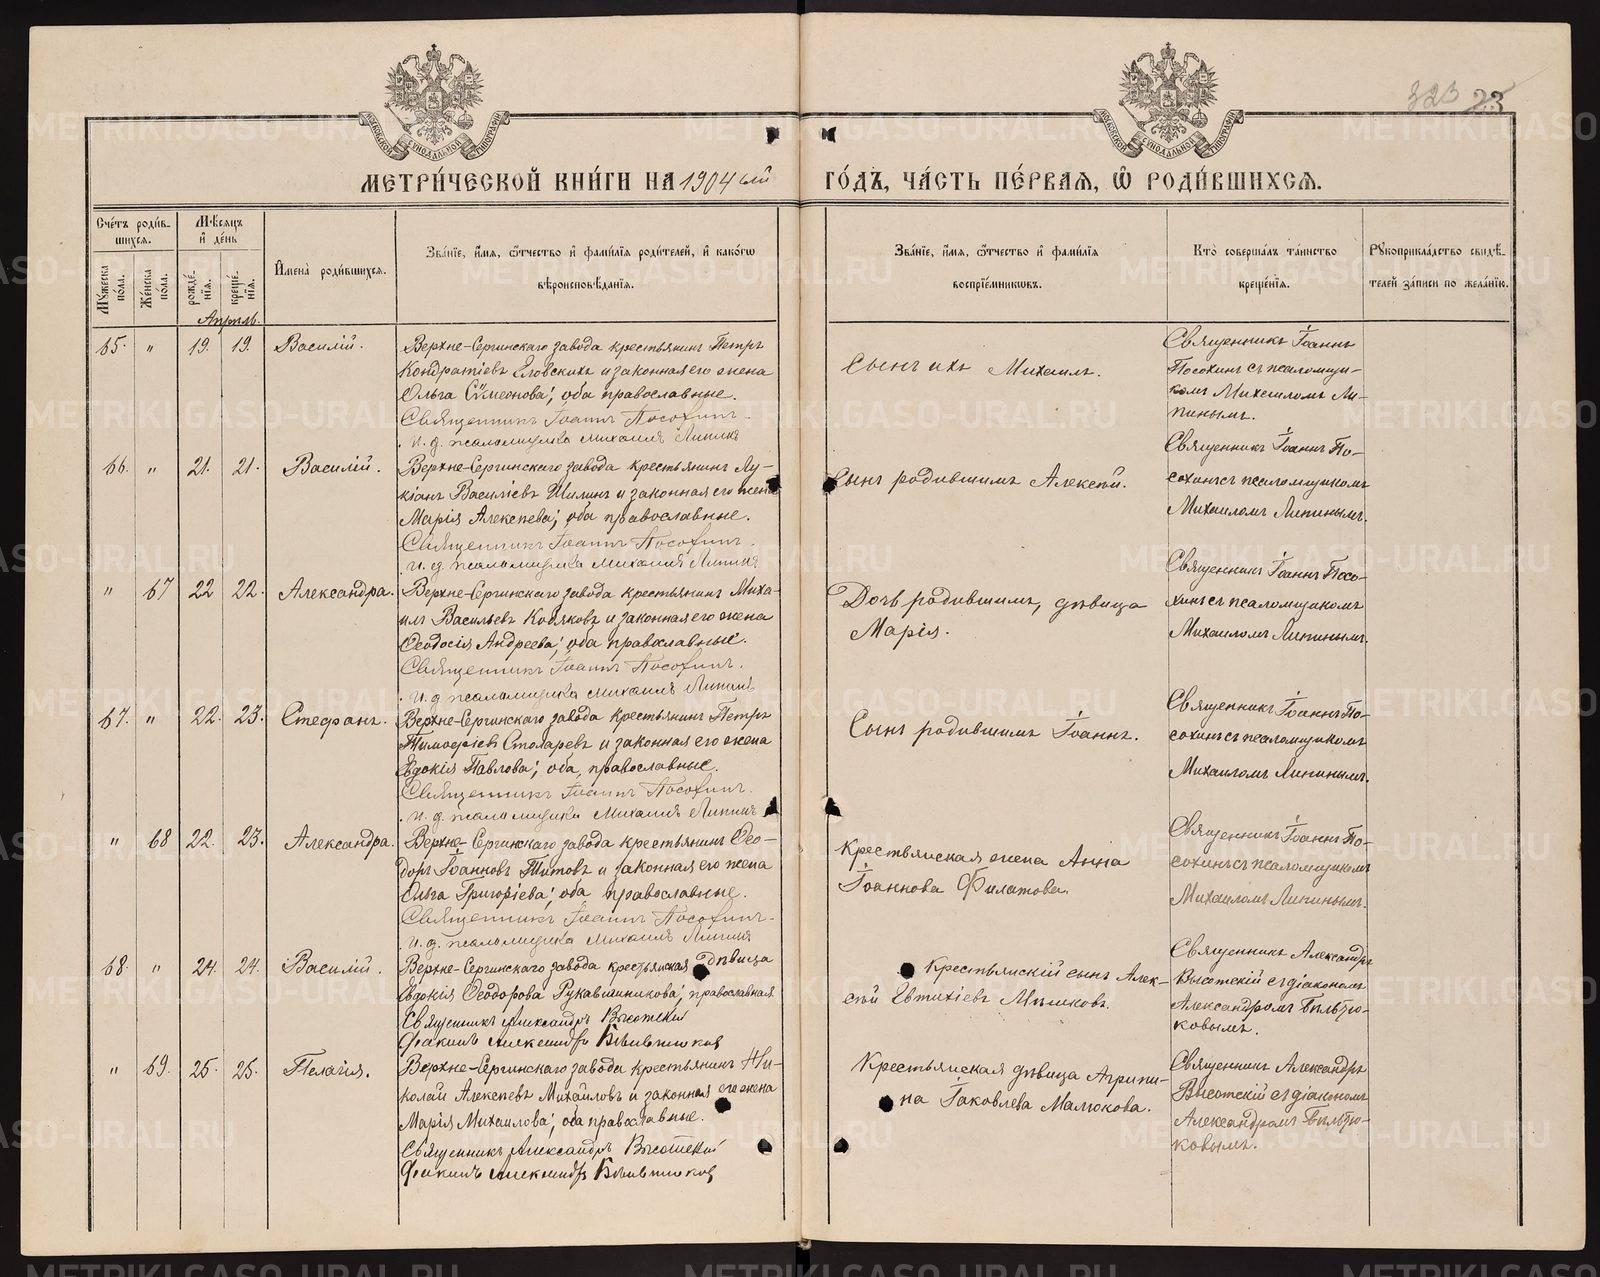 323 23
МОСКОВСКОЙ СѴНОДАЛЬНОЙ ТИПОГРАФИИ
МОСКОВСКОЙ СѴНОДАЛЬНОЙ ТИПОГРАФИИ
МЕТРИ́ЧЕСКОЙ КНИ́ГИ НА 1904 ый
ГО́ДЪ, ЧА́СТЬ ПЕ́РВАЯ, Ѡ҆ РОДИ́ВШИХСЯ.
Сче́тъ роди́в-
шихся.
Мѣ́сяцъ
и҆ де́нь
Му́жеска по́ла.
Же́нска по́ла.
рожде́нїя.
креще́нїя.
И҆мена̀ роди́вшихся.
Зва́нїе, и҆́мя, ѻ҆́тчество и҆ фами́лїя роди́телей, и҆ како́гѡ
вѣроисповѣ́данїя.
Зва́нїе, и҆́мя, ѻ҆́тчество и҆ фами́лїя
воспрїе́мникѡвъ.
Кто̀ соверша́лъ та́инство
креще́нїя.
Рꙋкоприкла́дство свидѣ́-
телей за́писи по жела́нїю.
Апрѣль.
65. " 19. 19. Василій.
Верхне-Сергинскаго завода крестьянинъ Петръ
Кондратіевъ Еловскихъ и законная его жена
Ольга Сѵмеонова; оба православные.
Священникъ Іоаннъ Посохинъ.
и. д. псаломщика Михаилъ Липинъ
Сынъ ихъ Михаилъ.
Священникъ Іоаннъ
Посохинъ съ псаломщи-
комъ Михаиломъ Ли-
пинымъ.
66. " 21. 21. Василій.
Верхне-Сергинскаго завода крестьянинъ Лу-
кіанъ Василіевъ Шилинъ и законная его жена
Марія Алексѣева; оба православные.
Священникъ Іоаннъ Посохинъ.
и. д. псаломщика Михаилъ Липинъ
Сынъ родившимъ Алексѣй.
Священникъ Іоаннъ По-
сохинъ съ псаломщикомъ
Михаиломъ Липинымъ.
" 67 22 22. Александра.
Верхне-Сергинскаго завода крестьянинъ Миха-
илъ Васильевъ Кобяковъ и законная его жена
Ѳеодосія Андреева; оба православные.
Священникъ Іоаннъ Посохинъ.
и. д. псаломщика Михаилъ Липинъ
Дочь родившимъ, дѣвица
Марія.
Священникъ Іоаннъ Посо-
хинъ съ псаломщикомъ
Михаиломъ Липинымъ.
67. " 22. 23. Стефанъ.
Верхне-Сергинскаго завода крестьянинъ Петръ
Тимофіевъ Столаревъ и законная его жена
Евдокія Павлова; оба православные.
Священникъ Іоаннъ Посохинъ.
и. д. псаломщика Михаилъ Липинъ
Сынъ родившимъ Іоаннъ.
Священникъ Іоаннъ По-
сохинъ съ псаломщикомъ
Михаиломъ Липинымъ.
" 68 22. 23. Александра.
Верхне-Сергинскаго завода крестьянинъ Ѳео-
доръ Іоанновъ Титовъ и законная его жена
Ольга Григоріева; оба православные.
Священникъ Іоаннъ Посохинъ.
и. д. псаломщика Михаилъ Липинъ
Крестьянская жена Анна
Іоаннова Филатова.
Священникъ Іоаннъ По-
сохинъ съ псаломщикомъ
Михаиломъ Липинымъ.
68. " 24. 24. Василій.
Верхне-Сергинскаго завода крестьянская дѣвица
Евдокія Ѳеодорова Рукавишникова; православная
Священникъ Александръ Высотскій
Діаконъ Александръ
Крестьянскій сынъ Алек-
сѣй Евтихіевъ Мѣшковъ.
Священникъ Александръ
Высотскій съ діакономъ
Александромъ
ковымъ.
" 69. 25. 25. Пелагія.
Верхне-Сергинскаго завода крестьянинъ Ни-
колай Алексѣевъ Михайловъ и законная его жена
Марія Михаилова; оба православные.
Священникъ Александръ Высотскій
Діаконъ Александръ
Крестьянская дѣвица Агрипи-
на Іаковлева Малюкова.
Священникъ Александръ
Высотскій съ діакономъ
Александромъ
ковымъ.
METRIKI.GASO-URAL.RU